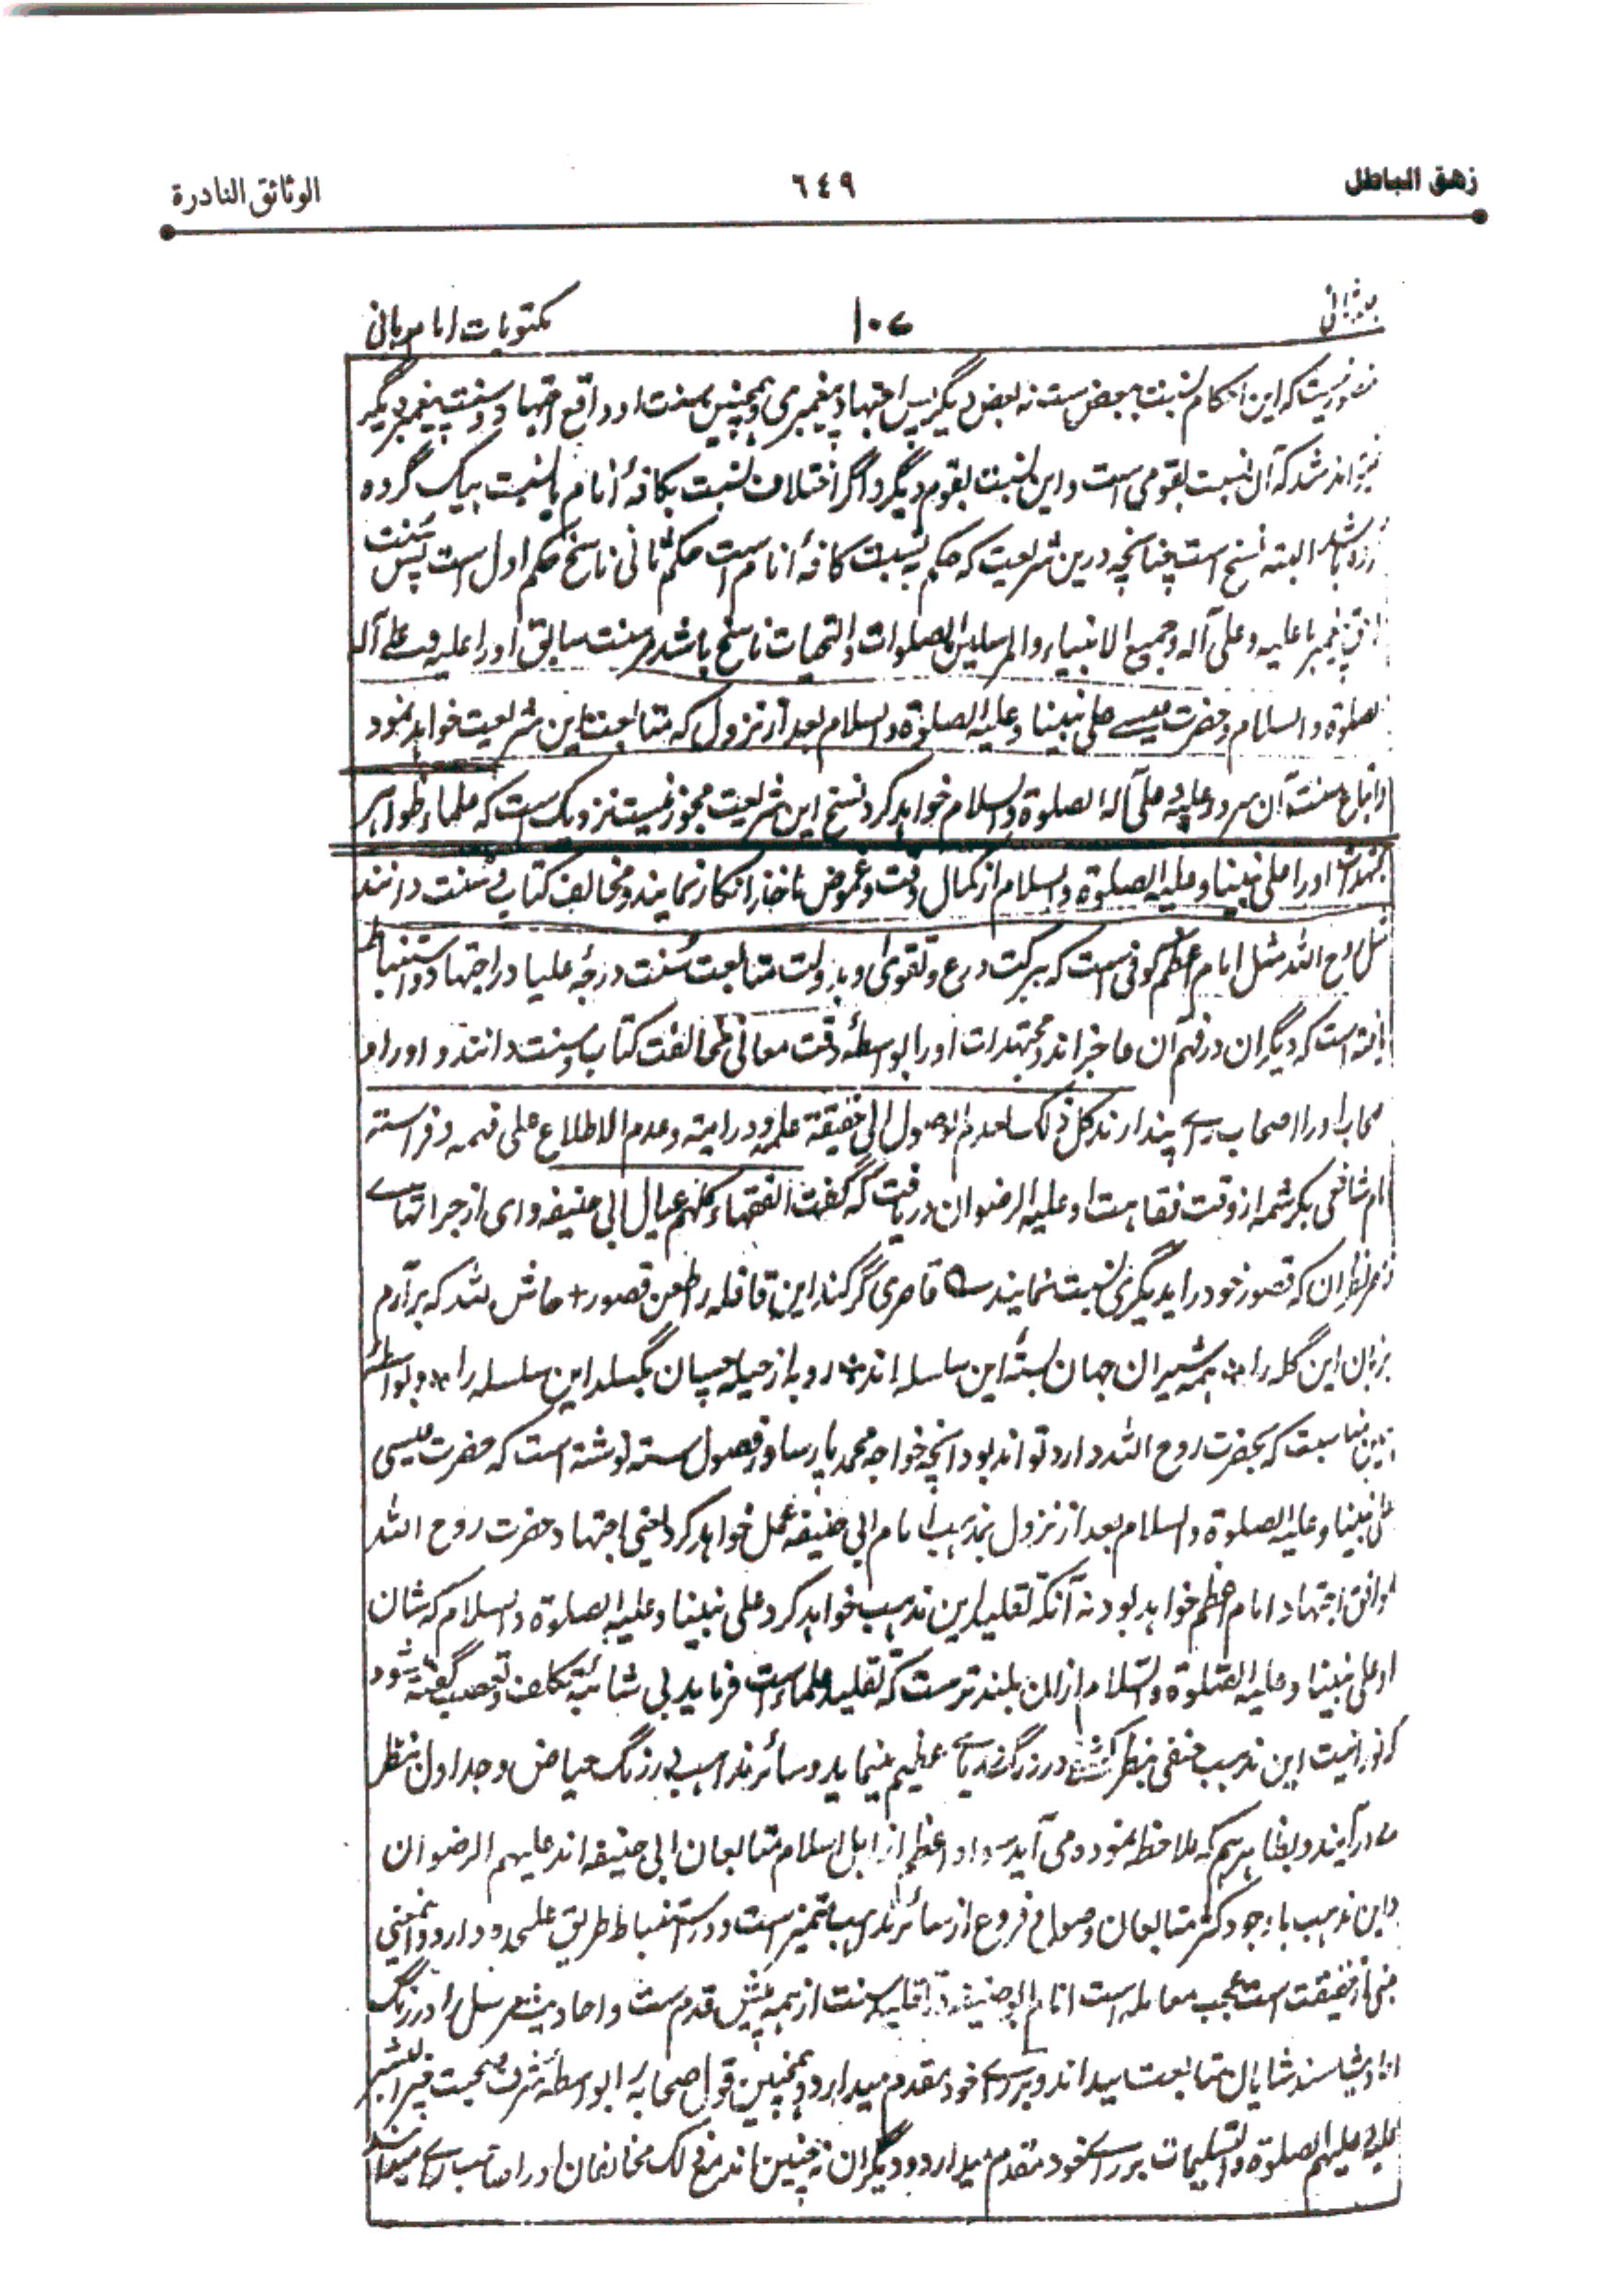 زهق الباطل ٦٤٩ الوثائق النادرة
مکتوبات امام ربانی ۱۰۷
که این احکام نسبت ببعض ست نه بعض دیگر پس اجتهاد پیغمبری و همچنین سنت او در واقع اجتهاد و سنت پیغمبر دیگر
نتواند شد که آن نسبت بقومی است و این نسبت بقوم دیگر و اگر اختلاف نسبت بکافهٔ انام یا نسبت بیک گروه
باشد البته نسخ است چنانچه درین شریعت که حکم نسبت کافهٔ انام است حکم ثانی ناسخ حکم اول است پس سنت
پیغمبر ما علیه و علی آله و جمیع الانبیاء والمرسلین الصلوات والتحیات ناسخ باشد مر سنت سابق او را علیه و علی آله
الصلوة والسلام و حضرت عیسے علی نبینا و علیه الصلوة والسلام بعد از نزول که متابعت این شریعت خواهد نمود
و اتباع سنت آن سرور علیه و علی آله الصلوة والسلام خواهد کرد نسخ این شریعت مجوز نیست نزدیک است که علماء ظواهر
مجتهدات او را علی نبینا و علیه الصلوة والسلام از کمال دقت و غموض ماخذ انکار نمایند و مخالف کتاب و سنت دانند
مثل روح الله مثل امام اعظم کوفی است که ببرکت ورع و تقوی و بدولت متابعت سنت درجهٔ علیا در اجتهاد و استنباط
یافته است که دیگران در فهم آن عاجز اند و مجتهدات او را بواسطهٔ دقت معانی مخالف کتاب و سنت دانند و او را و
اصحاب او را اصحاب رے پندارند کل ذلک لعدم الوصول الی حقیقة علمه و درایته و عدم الاطلاع علی فهمه و فراسته
امام شافعی که شمه از دقت فقاهت او علیه الرضوان دریافت که گفت الفقهاء کلهم عیال ابی حنیفه وای از جراتهاے
قاصر نظران که قصور خود را بدیگری نسبت نمایند ؎ قاصری گر کند این قافله را طعن قصور + حاش لله که برآرم
بزبان این گله را ٭ همه شیران جهان بستهٔ این سلسله اند ٭ روبه از حیله چسان بگسلد این سلسله را ٭ و بواسطهٔ
همین مناسبت که بحضرت روح الله دارد تواند بود آنچه خواجه محمد پارسا در فصول سته نوشته است که حضرت عیسی
علی نبینا و علیه الصلوة والسلام بعد از نزول بمذهب امام ابی حنیفه عمل خواهد کرد یعنی اجتهاد حضرت روح الله
موافق اجتهاد امام اعظم خواهد بود نه آنکه تقلید این مذهب خواهد کرد علی نبینا و علیه الصلوة والسلام که شان
او علی نبینا و علیه الصلوة والسلام ازان بلند ترست که تقلید علماء امت فرماید بی شائبهٔ تکلف و تعصب گفته شود
که نورانیت این مذهب حنفی بنظر کشفی در رنگ دریاے عظیم مینماید و سائر مذاهب در رنگ حیاض و جداول بنظر
مے درآیند و بظاهر هم که ملاحظه نموده می آید سواد اعظم از اهل اسلام متابعان ابی حنیفه اند علیهم الرضوان
و این مذهب با وجود کثرت متابعان در اصول و فروع از سائر مذاهب متمیز است و در استنباط طریق علیحده دارد و اینمعنی
مبنی از حقیقت است عجب معامله است امام ابوحنیفه در تقلید سنت از همه پیش قدم ست و احادیث مرسل را در رنگ
احادیث مسند شایان متابعت میداند و بر رے خود مقدم میدارد و همچنین قول صحابه را بواسطهٔ شرف صحبت خیر البشر
علیه و علیهم الصلوة والتسلیمات بر رے خود مقدم میدارد و دیگران نه چنین اند مع ذلک مخالفان او را صاحب رے میدانند